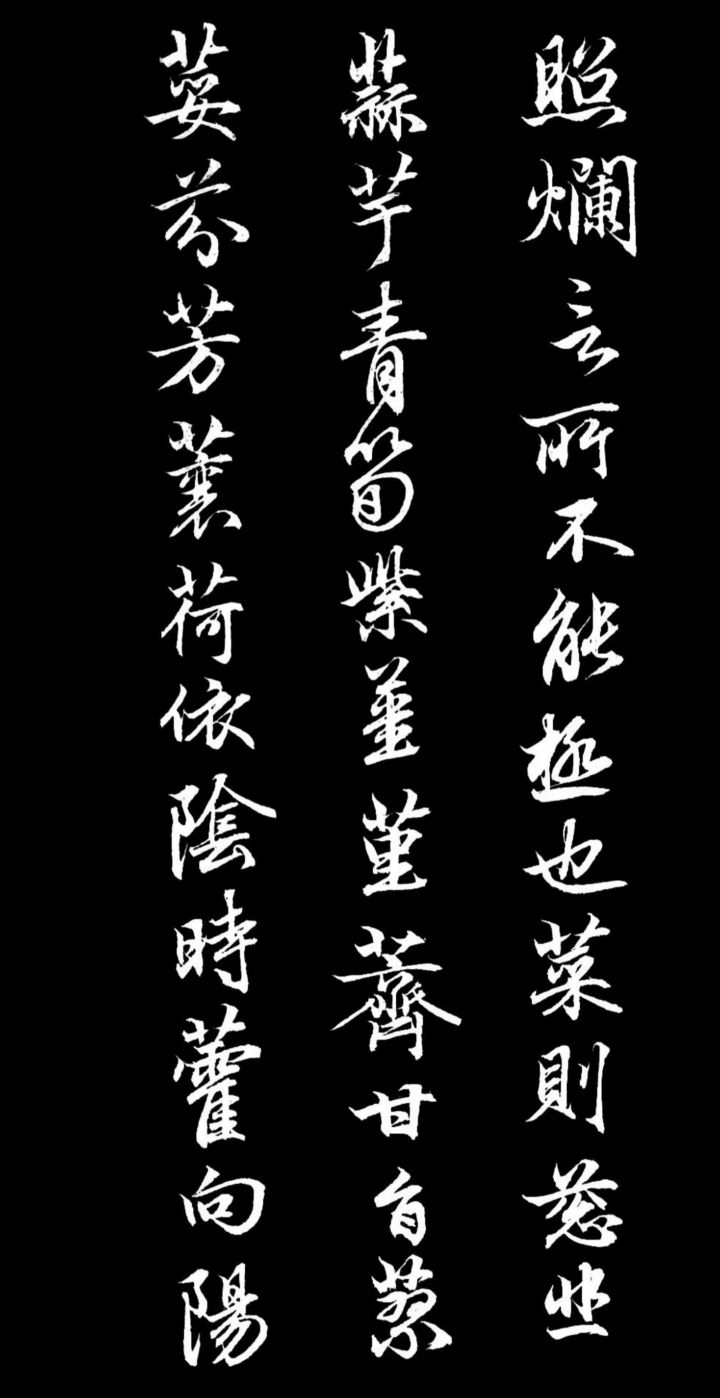 照爛言所不能極也菜則葱韭
蒜芋青筍紫薑菫薺甘旨蓼
荽芬芳蘘荷依陰時藿向陽